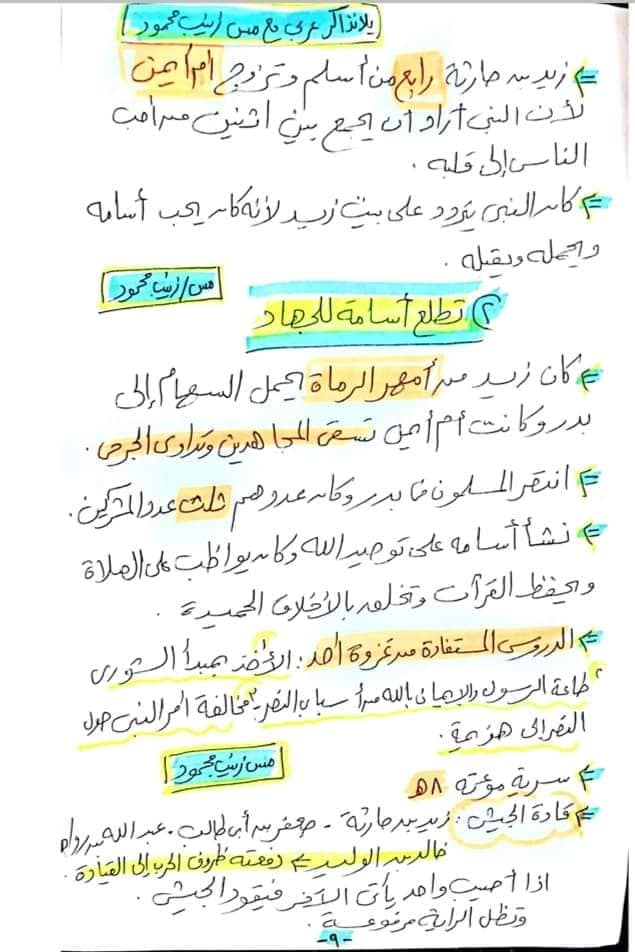 يلا نذاكر عربي مع مس زينب محمود
⇐ زيد بن حارثة رابع من أسلم وتزوج أم أيمن
لأن النبي أراد أن يجمع بين اثنين من أحب
الناس إلى قلبه .
⇐ كان النبي يتردد على بيت زيد لأنه كان يحب أسامه
ويحمله ويقبله .
مس/زينب محمود
٢) تطلع أسامة للجهاد
⇐ كان زيد من أمهر الرماة يحمل السهام إلى
بدر وكانت أم أيمن تسقى المجاهدين وتداوى الجرحى .
⇐ انتصر المسلمون في بدر وكان عددهم ثلث عدد المشركين .
⇐ نشأ أسامه على توحيد الله وكان يواظب على الصلاة
ويحفظ القرآن وتخلق بالأخلاق الحميدة .
⇐ الدروس المستفادة من غزوة أحد : ١- الأخذ بمبدأ الشورى
٢- طاعة الرسول والإيمان بالله من أسباب النصر - ٣- مخالفة أمر النبي حول
النصر الى هزيمة .
مس زينب محمود
⇐ سرية مؤتة ٨هـ
⇐ قادة الجيش : زيد بن حارثة - جعفر بن أبي طالب - عبد الله بن رواحه
خالد بن الوليد ⇐ دفعته ظروف الحرب إلى القيادة .
اذا أصيب واحد يأتى الآخر فيقود الجيش .
وتظل الراية مرفوعة .
-٩-